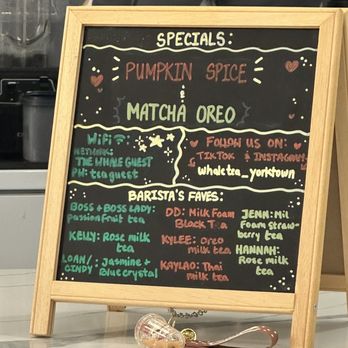 SPECIALS:
PUMPKIN SPICE
&
MATCHA OREO
WiFi
NETWORK:
THE WHALE GUEST
PW: teaguest
FOLLOW US ON:
TIKTOK & INSTAGRAM
whaletea_yorktown
BARISTA'S FAVES:
BOSS + BOSS LADY:
passionfruit tea
KELLY: Rose milk
tea
LOAN/
CINDY: Jasmine +
Blue crystal
DD: Milk Foam
Black Tea
KYLEE: Oreo
milk tea
KAYLAO: Thai
milk tea
JENN: Mil
Foam Straw-
berry tea
HANNAH:
Rose milk
tea